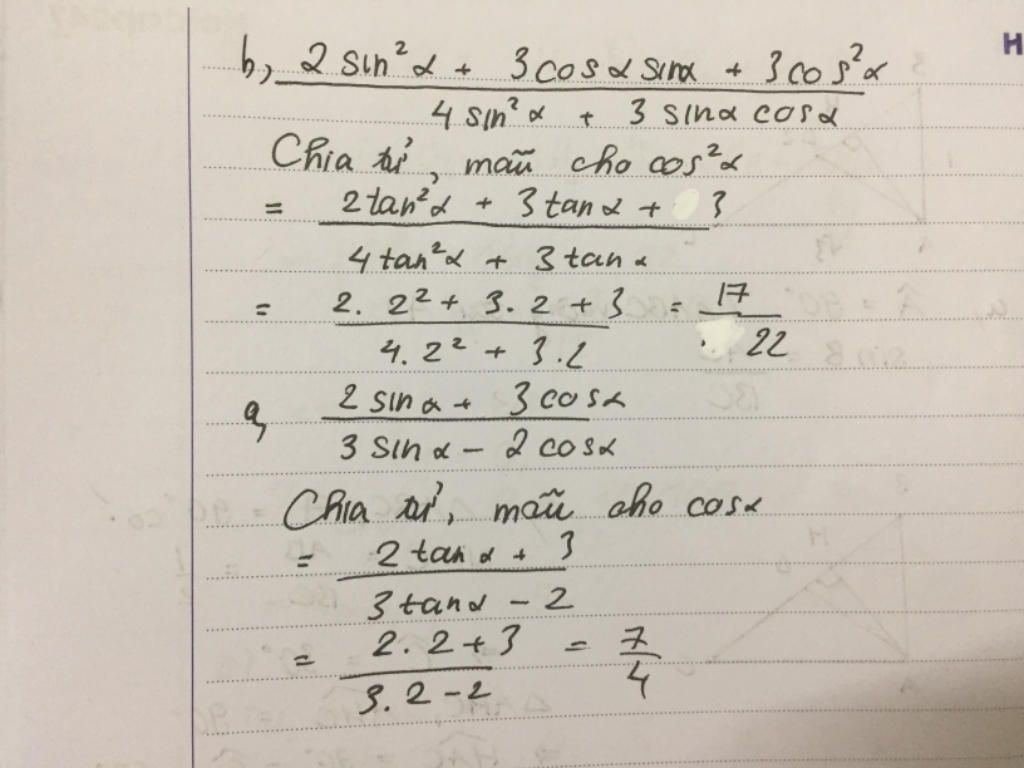 H
b, 2 sin²α + 3 cos α sin α + 3 cos²α
4 sin²α + 3 sin α cos α
Chia tử, mẫu cho cos²α
= 2 tan²α + 3 tan α + 3
4 tan²α + 3 tan α
= 2. 2² + 3. 2 + 3 = 17
4. 2² + 3. 2 22
a, 2 sin α + 3 cos α
3 sin α - 2 cos α
Chia tử, mẫu cho cos α
= 2 tan α + 3
3 tan α - 2
= 2. 2 + 3 = 7
3. 2 - 2 4